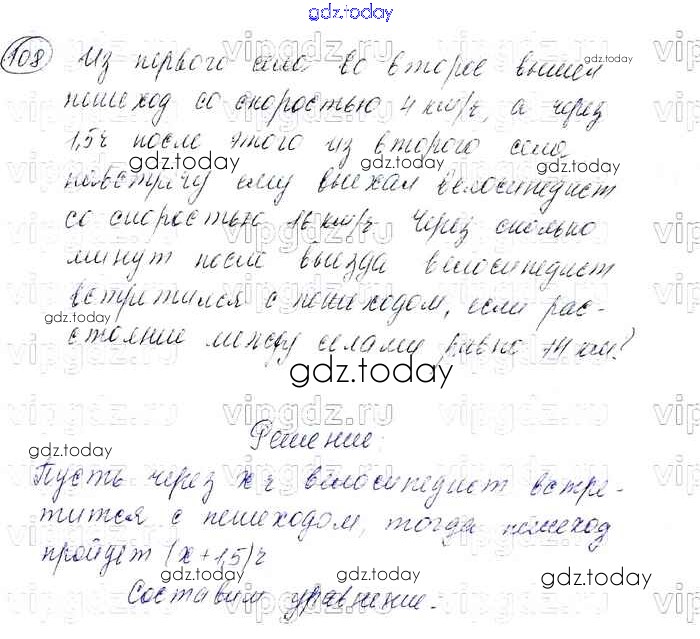 gdz.today
108 Из первого села во второе вышел
пешеход со скоростью 4 км/ч, а через
1,5 ч после этого из второго села
навстречу ему выехал велосипедист
со скоростью 16 км/ч Через сколько
минут после выезда велосипедист
встретился с пешеходом, если рас-
стояние между селами равно 14 км?
Решение:
Пусть через x ч велосипедист встре-
тится с пешеходом, тогда пешеход
пройдет (x+1,5) ч
Составим уравнение: